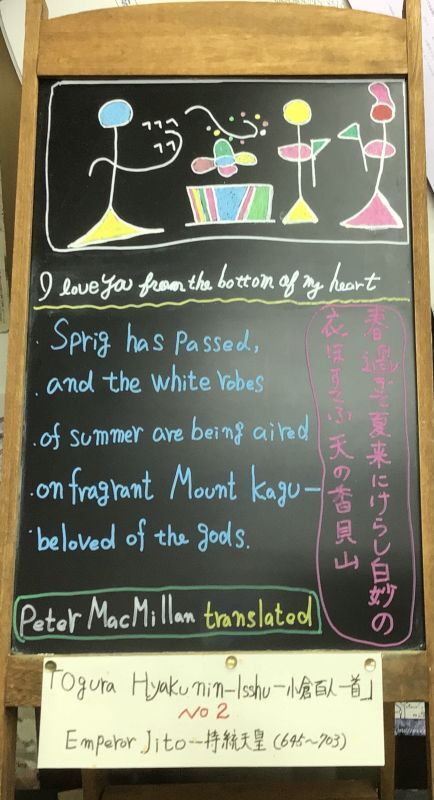 I love you from the bottom of my heart
春過ぎて夏来にけらし白妙の
衣ほすてふ天の香具山
Sprig has passed,
and the white robes
of summer are being aired
on fragrant Mount Kagu-
beloved of the gods.
Peter MacMillan translated
「Ogura Hyakunin-Isshu-小倉百人一首」
NO 2
Emperor Jito--持統天皇 (645~703)